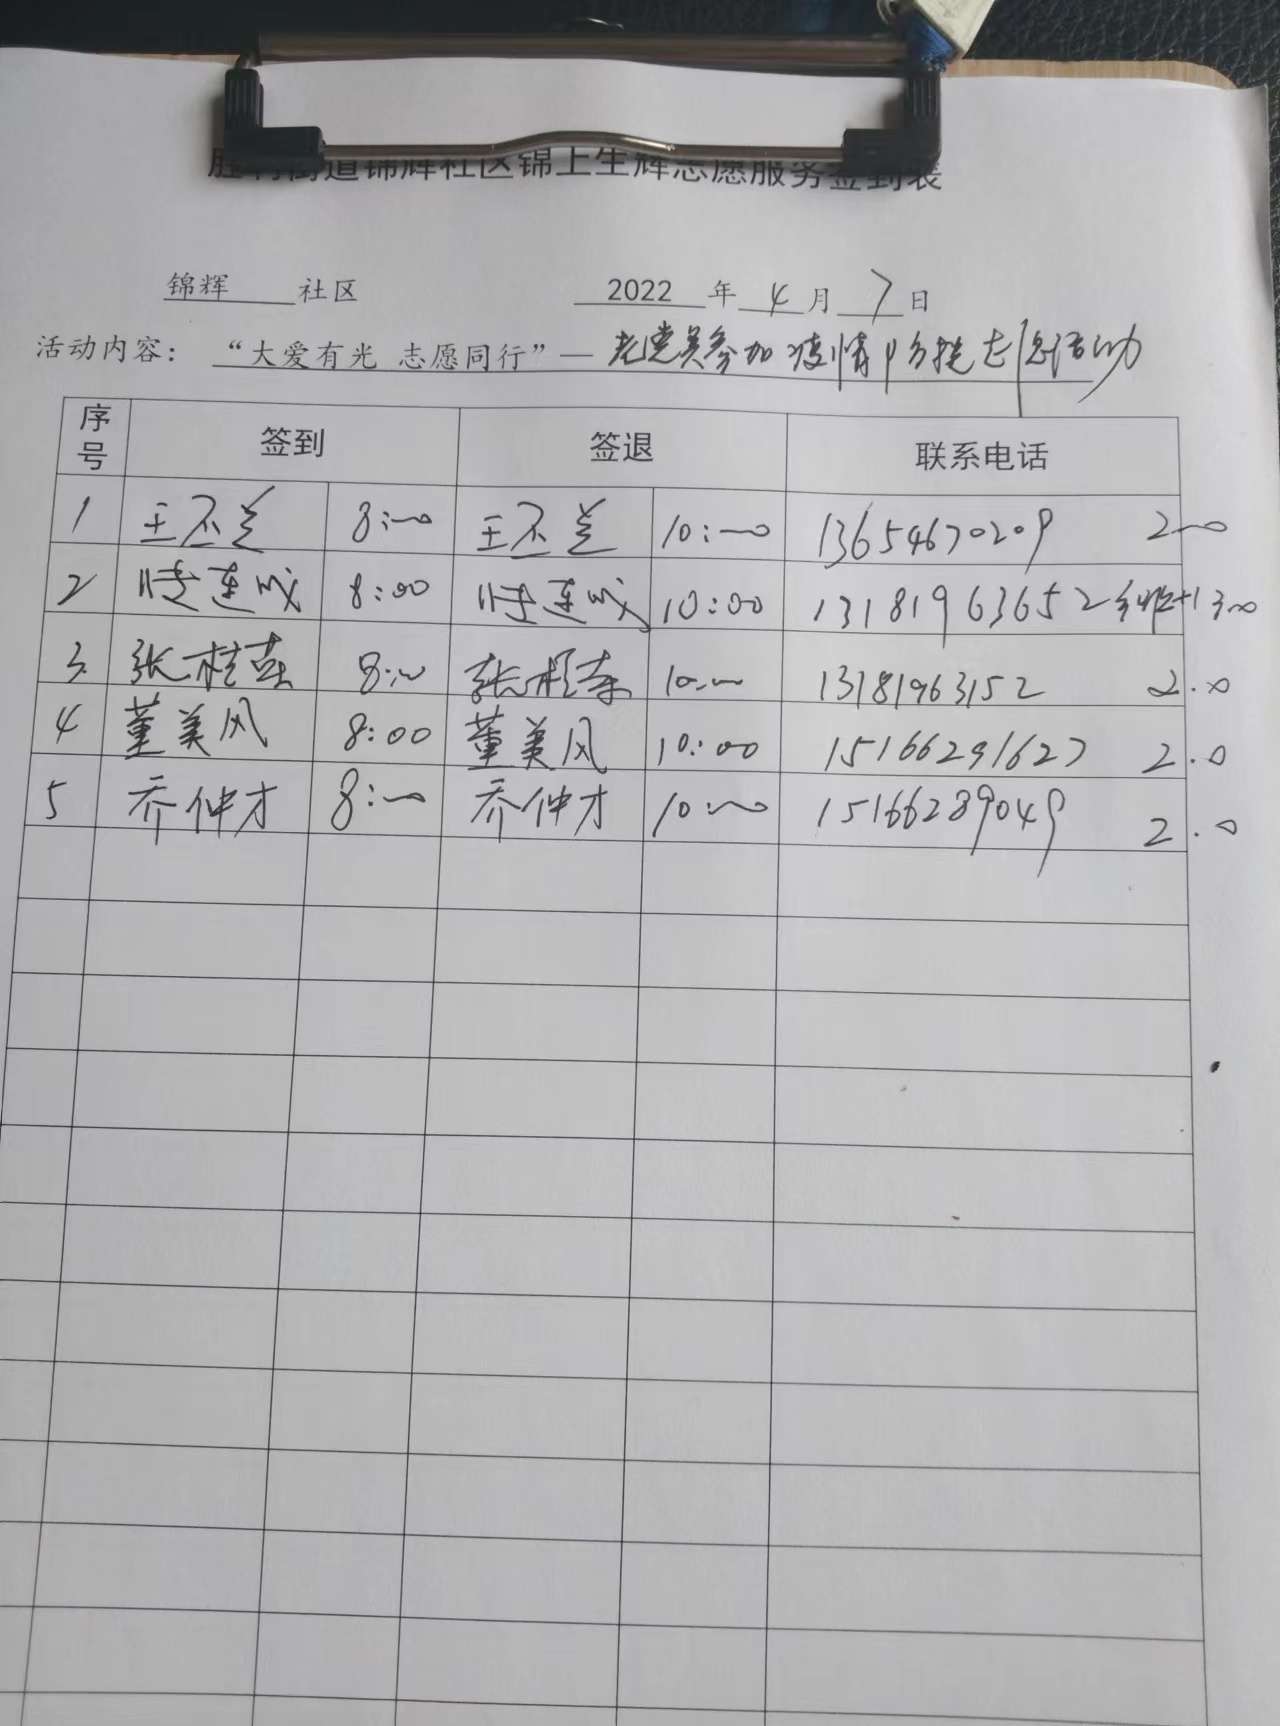 胜利街道锦辉社区锦上生辉志愿服务签到表
锦辉 社区 2022 年 4 月 7 日
活动内容： “大爱有光 志愿同行”— 老党员参加疫情防控志愿活动
序号 签到 签退 联系电话
1 王丕兰 8:00 王丕兰 10:00 13654670209 2.0
2 连成 8:00 连成 10:00 13181963652 +1 3.0
3 张桂英 8:00 张桂英 10:00 13181963152 2.0
4 董美风 8:00 董美风 10:00 15166291627 2.0
5 乔仲才 8:00 乔仲才 10:00 15166289049 2.0